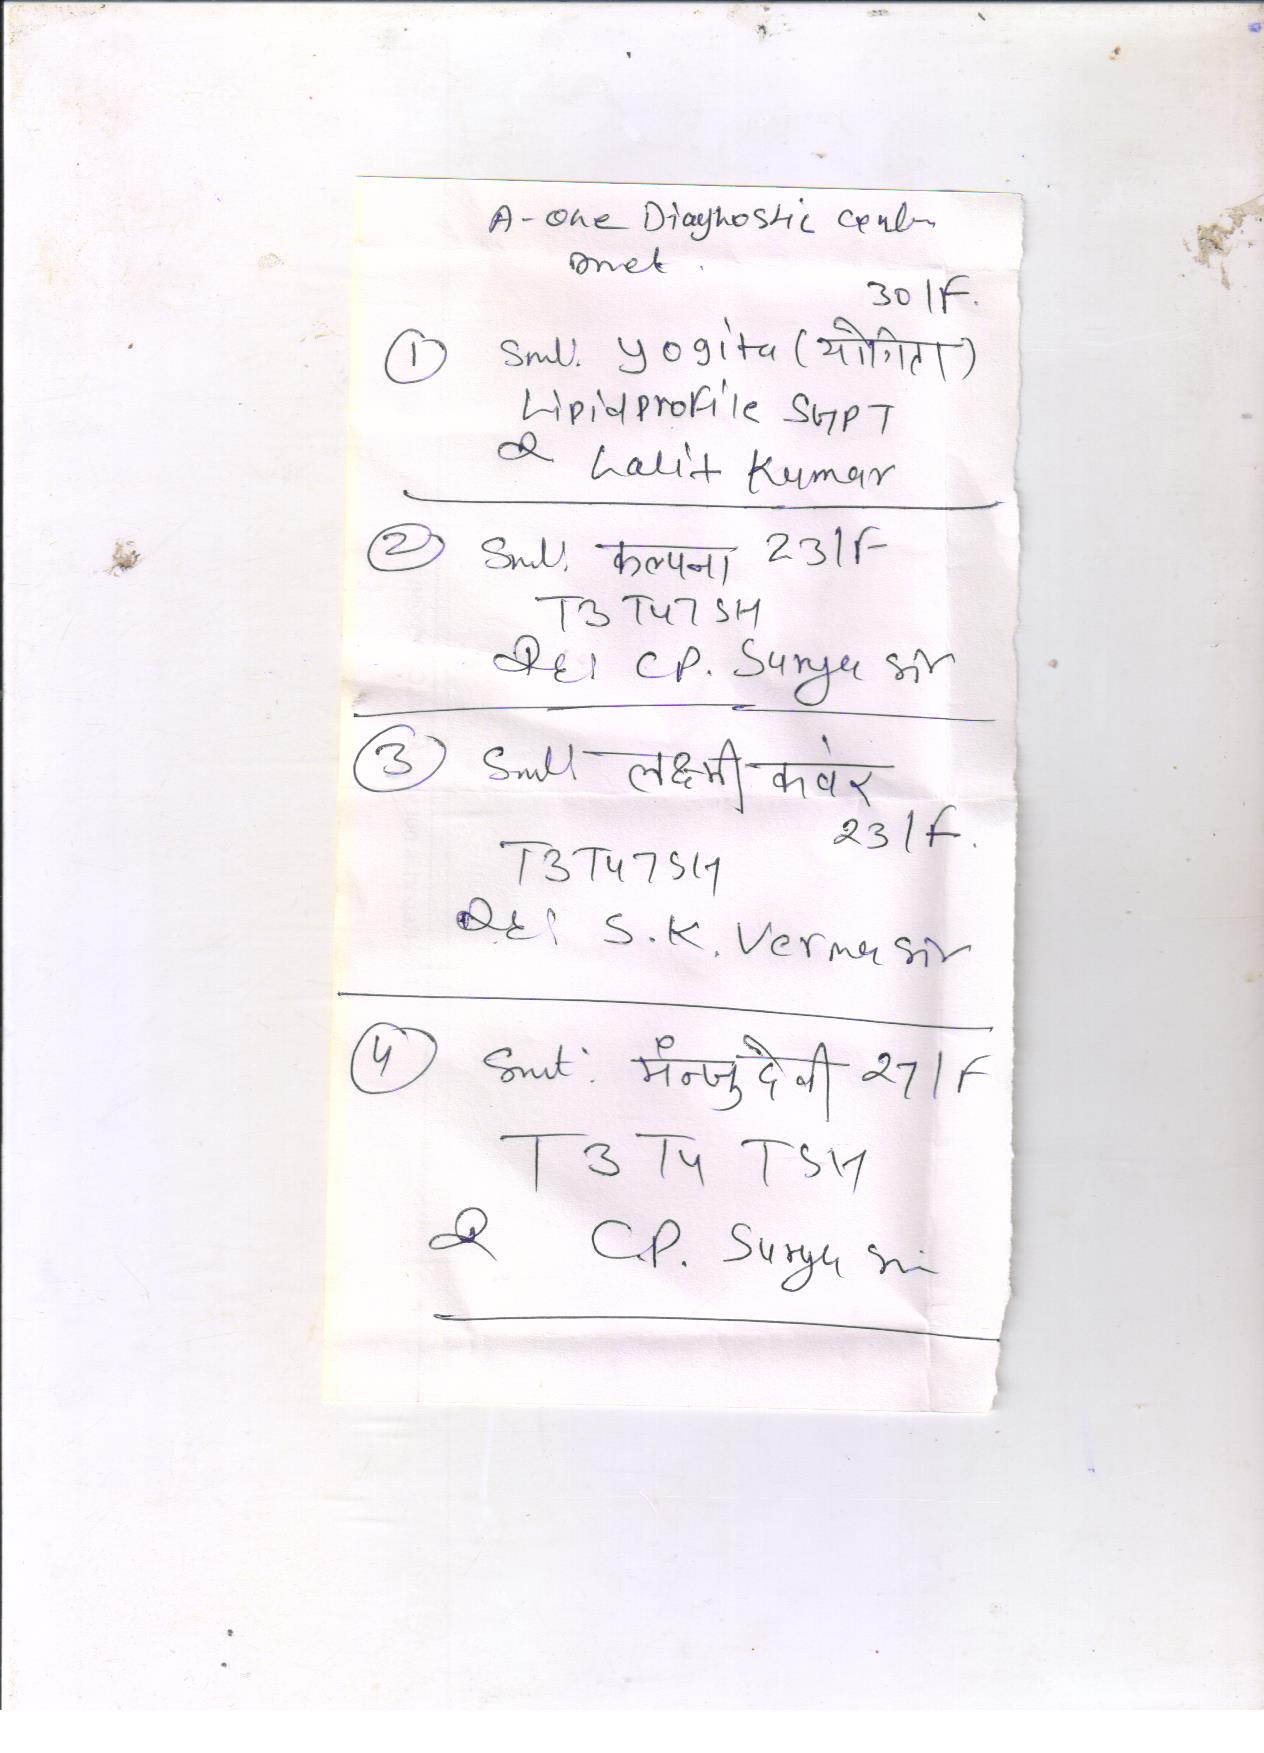 A-one Diagnostic
30/F.
① Smt. Yogita (योगिता)
Lipidprofile SGPT
Lalit Kumar
② Smt. कल्पना 23/F
T3 T4 TSH
CP. Surya Sir
③ Smt लक्ष्मी कवंर
23/F.
T3T4TSH
S.K. Verma Sir
④ Smt. मंन्जु देवी 27/F
T3 T4 TSH
C.P. Surya Sir